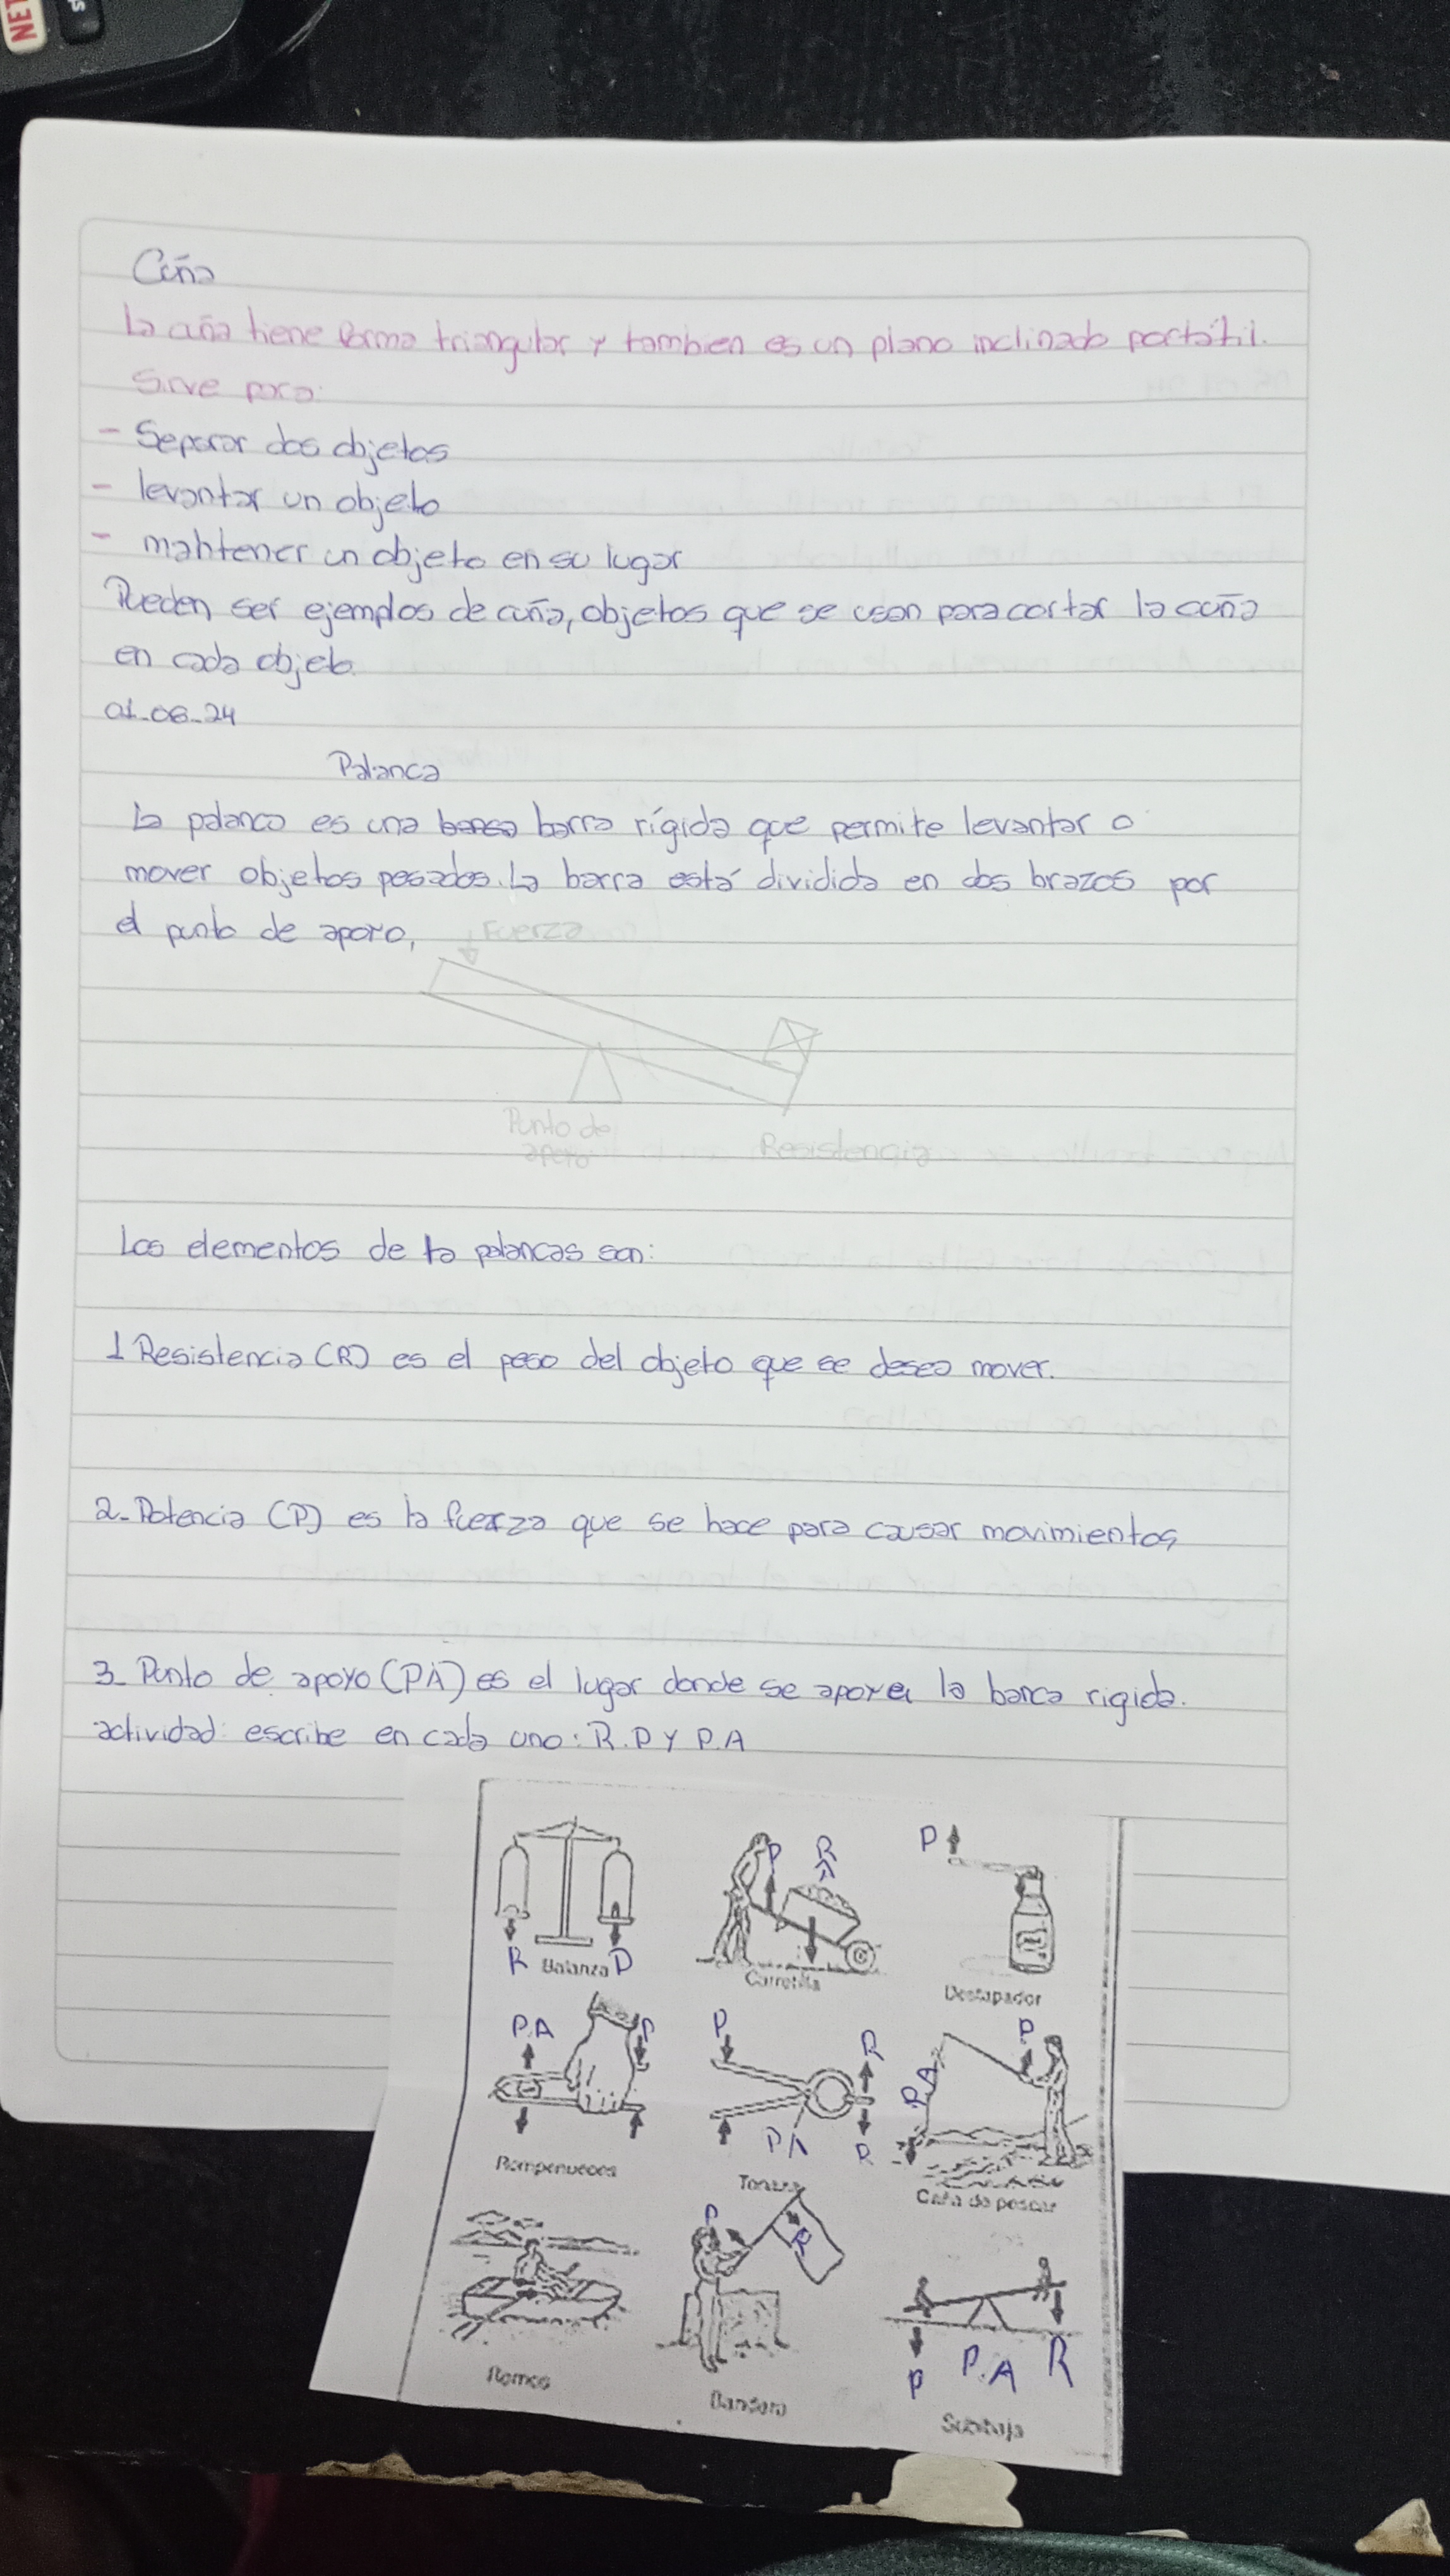 NET
Cuña
la cuña tiene forma triangular y tambien es un plano inclinado portátil.
Sirve para:
- Separar dos objetos
- levantar un objeto
- mantener un objeto en su lugar
Pueden ser ejemplos de cuña, objetos que se usan para cortar la cuña
en cada objeto.
01-06-24
Palanca
La palanca es una barra rígida que permite levantar o
mover objetos pesados. La barra está dividida en dos brazos por
el punto de apoyo,
Fuerza
Punto de
apoyo
Resistencia
Los elementos de la palancas son:
1 Resistencia (R) es el peso del objeto que se desea mover.
2- Potencia (P) es la fuerza que se hace para causar movimientos
3- Punto de apoyo (PA) es el lugar donde se apoya la barra rigida.
actividad: escribe en cada uno: R. P Y P.A
P R P
R Balanza P
Carretilla
Destapador
P.A P P R P
P.A
PA R
Rompenueces
Tenaza
Caña de pescar
P R
P P.A R
Remos
Bandera
Subibaja